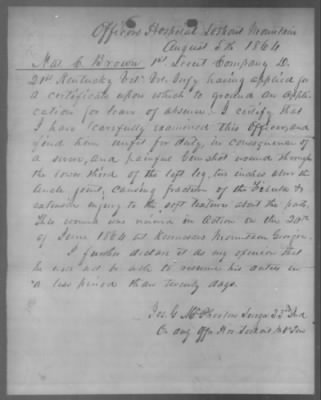 Officers Hospital Lookout Mountain
August 5th 1864
Jas. C. Brown 1st Lieut Company D.
21st Kentucky Vet. Vol. Infy having applied for
a certificate upon which to ground an appli-
cation for leave of absence. I certify that
I have carefully examined this Officer, and
find him unfit for duty, in consequence of
a severe, and painful Gunshot wound through
the lower third of the left leg, two inches above the
ankle joint, causing fracture of the Fibula &
extensive injury to the soft textures about the part.
This wound was received in Action on the
of June 1864 at Kennesaw Mountain Georgia.
I further declare it as my opinion that
he will not be able to resume his duties in
a less period than twenty days.
Jos. G. Surgeon Ind